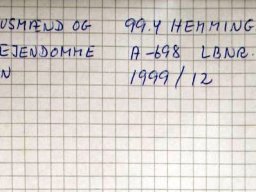 USMÆND OG 99.4 HEMMING
EJENDOMME A-698 LBNR.
N 1999/12